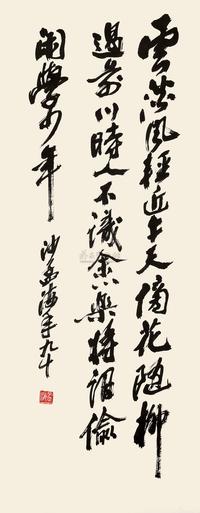 雲淡風輕近午天傍花隨柳
過前川時人不識余樂將謂偷
閒學少年
沙孟海年九十